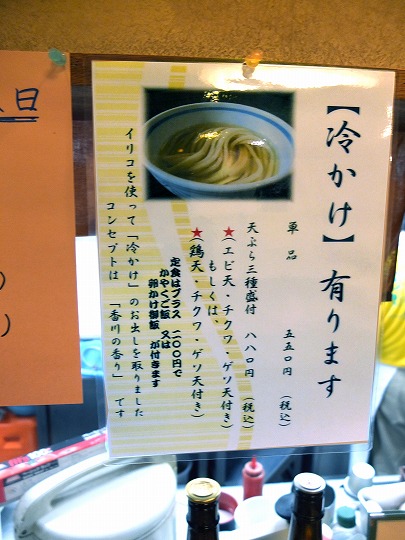 【冷かけ】有ります
単品 五五〇円 (税込)
天ぷら三種盛付 八八〇円 (税込)
★(エビ天・チクワ・ゲソ天付き)
もしくは、
★(鶏天・チクワ・ゲソ天付き)
定食はプラス 二〇〇円で
かやくご飯 又は
卵かけ御飯 が付きます
イリコを使って「冷かけ」のお出しを取りました
コンセプトは 「香川の香り」 です
日